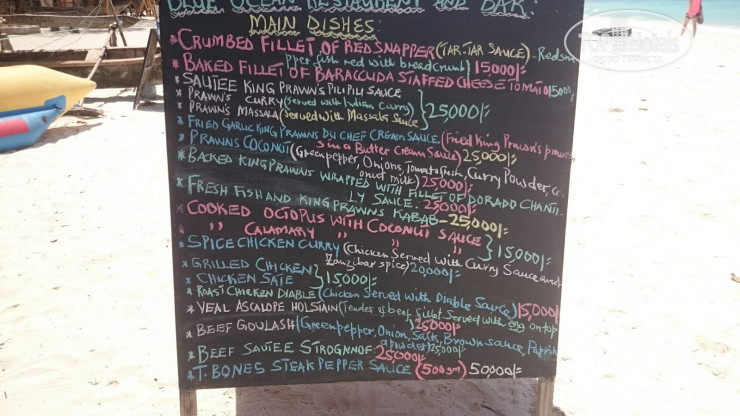 BLUE OCEAN RESTAURENT AND BAR:
MAIN DISHES:
*CRUMBED FILLET OF RED SNAPPER (TAR-TAR SAUCE) - Red sn
pper fish red with breadcrumb) 15,000/=
*BAKED FILLET OF BARACCUDA STAFFED CHEESE TOMATO 15000/=
*SAUTEE KING PRAWNS PILI PILI SAUCE
*PRAWNS CURRY (Served with Indian Curry) } 25,000/=
*PRAWNS MASSALA (Served With Massala Sauce
*FRIED GARLIC KING PRAWNS DU CHEF CREAM SAUCE (Fried King Prawn's prawns
s in a Butter Cream Sauce) 25,000/=
*PRAWNS COCONUT (Green pepper, Onions, Tomato fresh, Curry Powder, Co
onut milk) 25000/=
*BACKED KING PRAWNS WRAPPED WITH FILLET OF DORADO CHANTIL-
LY SAUCE. 25000/=
*FRESH FISH AND KING PRAWNS KABAB - 25,000/=
*COOKED OCTOPUS WITH COCONUT SAUCE } 15,000/=
* " CALAMARY " " "
*SPICE CHICKEN CURRY (Chicken Served with Curry Sauce and
Zanzibar spice) 20,000/=
*GRILLED CHICKEN } 15,000/=
*CHICKEN SATE
*ROAST CHICKEN DIABLE (Chicken Served with Diable Sauce) 15,000/=
*VEAL ASCALOPE HOLSTAIN (Tender of beef fillet Served with egg on top
) 25000/=
*BEEF GOULASH (Green pepper, Onion, Salt, Brown sauce, Paprik
a powder) 25,000/=
*BEEF SAUTEE STROGNNOF: 25,000/=
*T. BONES STEAK PEPPER SAUCE (500gm) 50,000/=